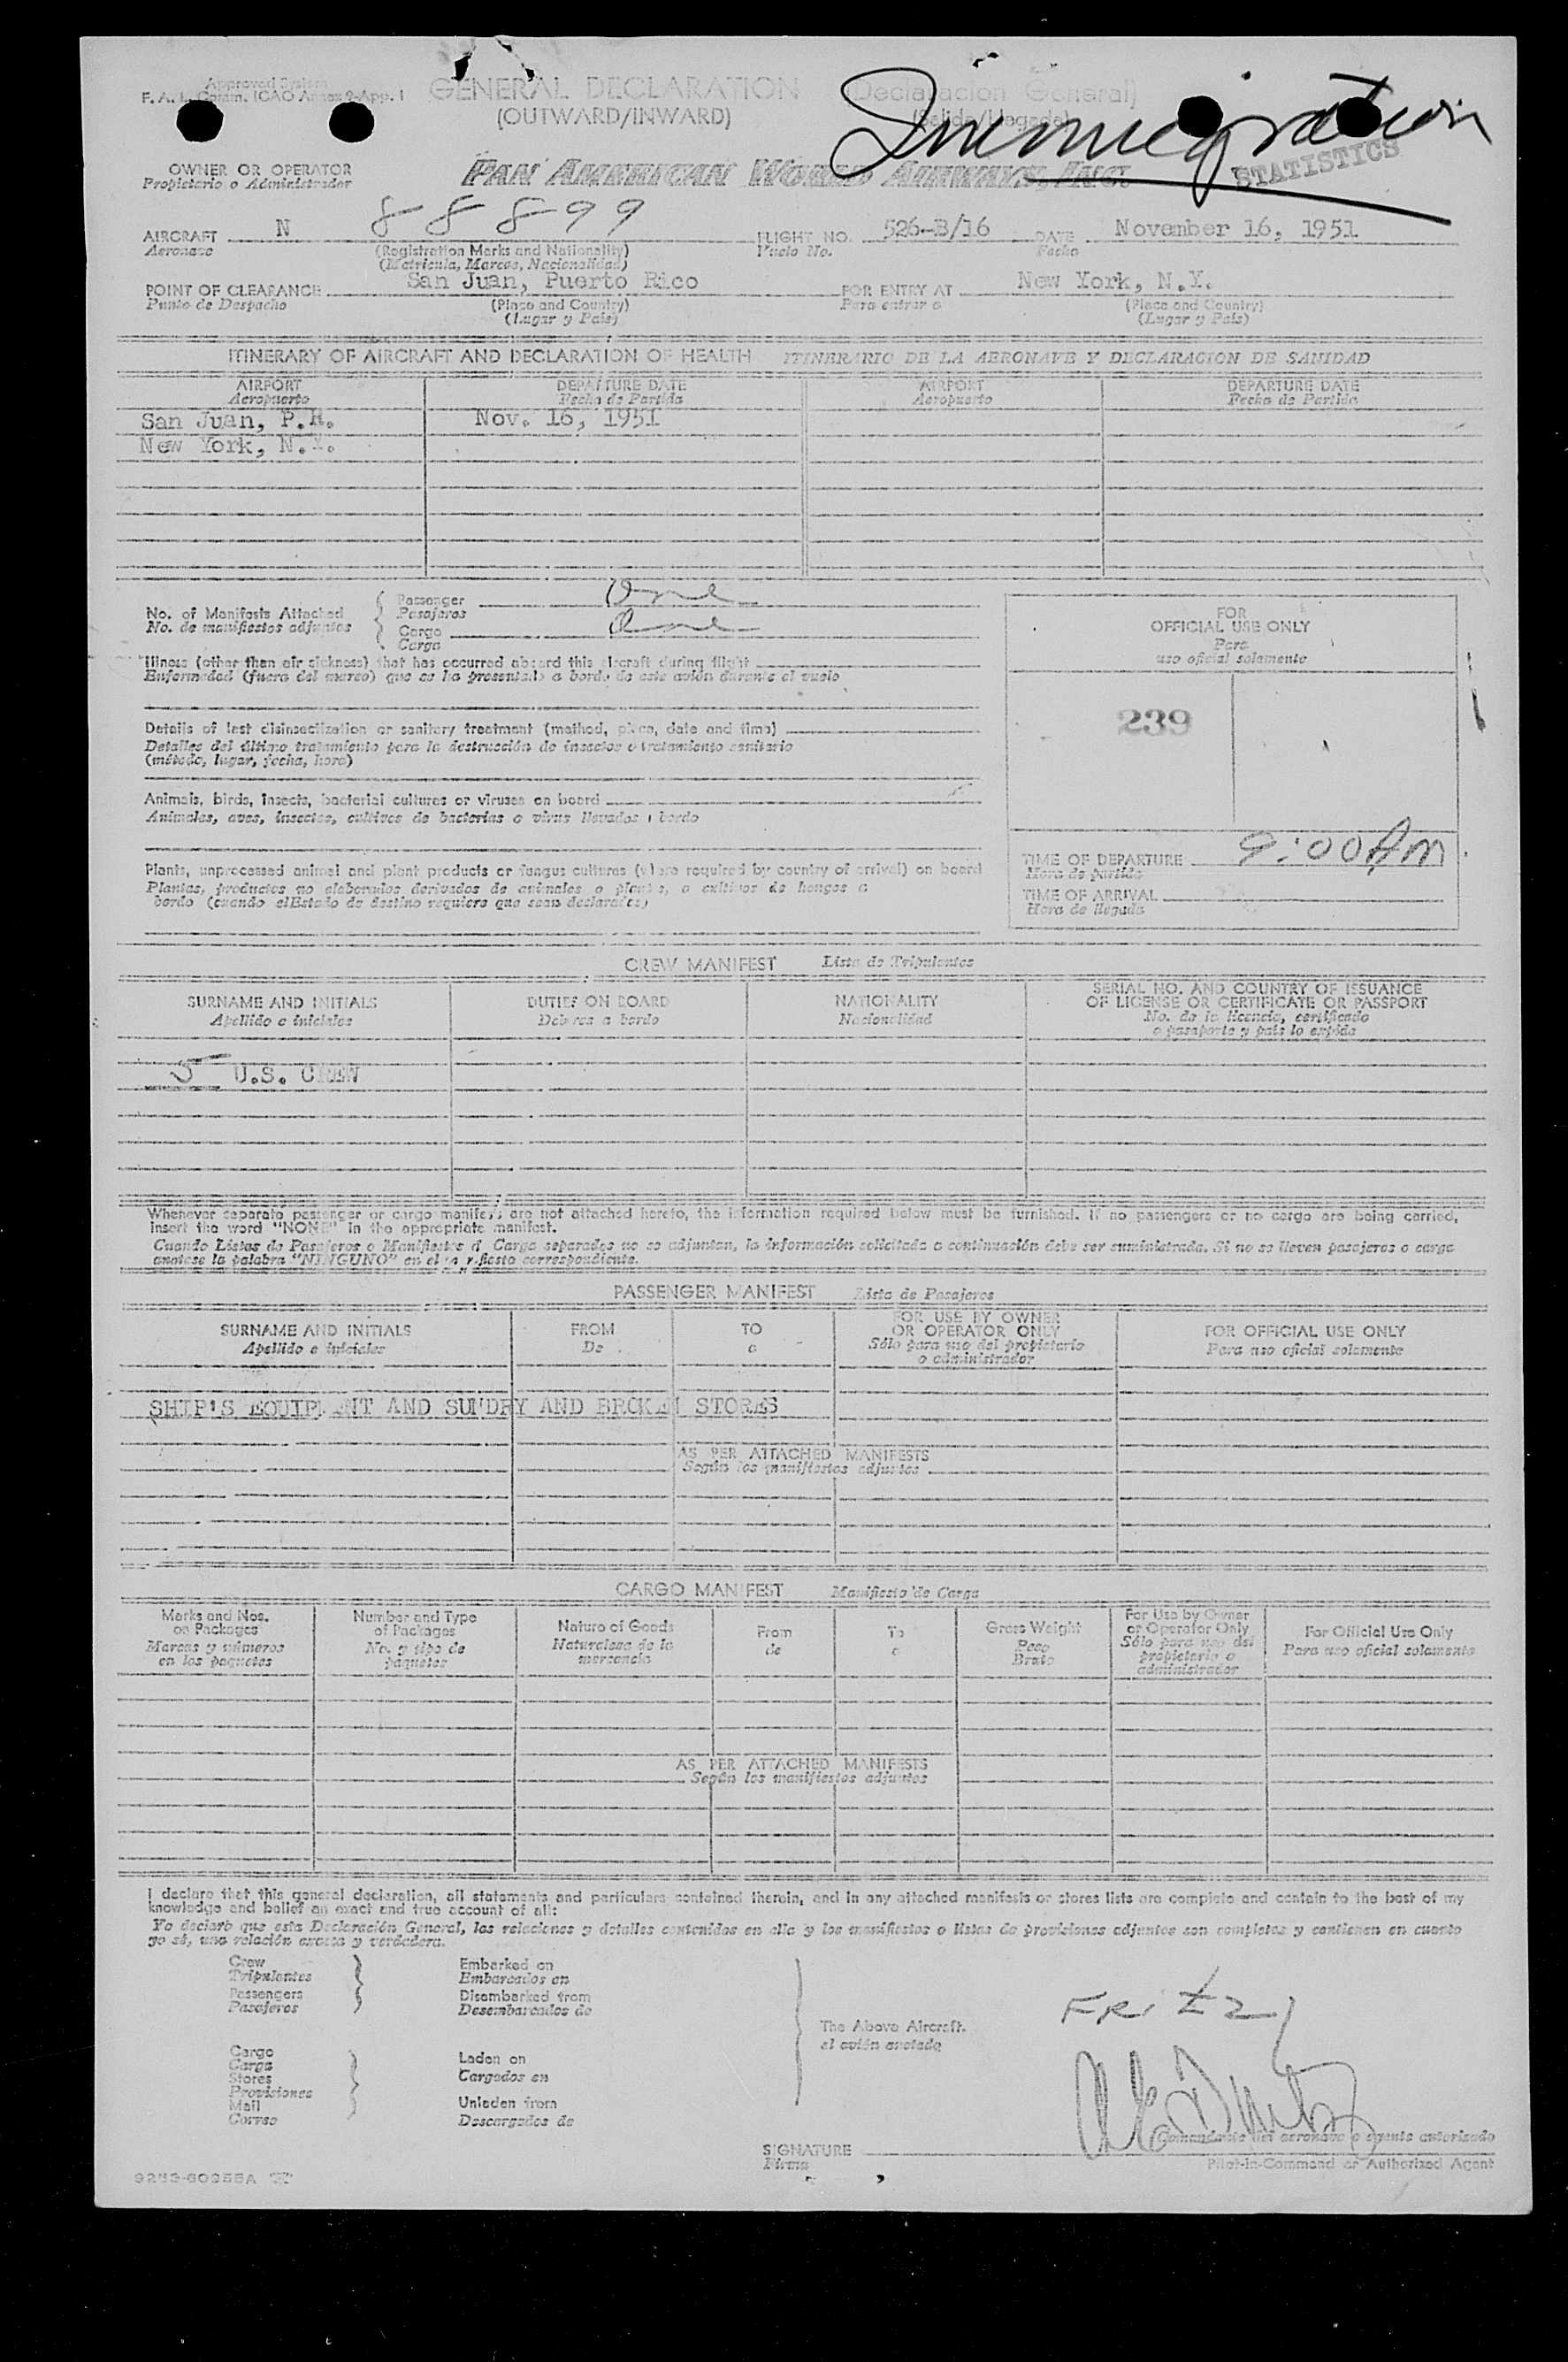 Approved System
F. A. L. Comm. ICAO Annex 9-App. I
GENERAL DECLARATION (Declaracion General)
(OUTWARD/INWARD) (Salida/Llegada)
Immigration
STATISTICS
OWNER OR OPERATOR
Propietario o Administrador
PAN AMERICAN WORLD AIRWAYS, INC.
AIRCRAFT N 88899 FLIGHT NO. 526-B/16 DATE November 16, 1951
Aeronave (Registration Marks and Nationality) Vuelo No. Fecha
(Matricula, Marcas, Nacionalidad)
POINT OF CLEARANCE San Juan, Puerto Rico FOR ENTRY AT New York, N.Y.
Punto de Despacho (Place and Country) Para entrar a (Place and Country)
(Lugar y Pais) (Lugar y Pais)
ITINERARY OF AIRCRAFT AND DECLARATION OF HEALTH ITINERARIO DE LA AERONAVE Y DECLARACION DE SANIDAD
AIRPORT DEPARTURE DATE AIRPORT DEPARTURE DATE
Aeropuerto Fecha de Partida Aeropuerto Fecha de Partida
San Juan, P.R. Nov. 16, 1951
New York, N.Y.
No. of Manifests Attached Passenger One
No. de manifiestos adjuntos Pasajeros
Cargo One
Carga
Illness (other than air sickness) that has occurred aboard this aircraft during flight
Enfermedad (fuera del mareo) que se ha presentado a bordo de este avión durante el vuelo
Details of last disinsectization or sanitary treatment (method, place, date and time)
Detalles del último tratamiento para la destrucción de insectos o tratamiento sanitario
(método, lugar, fecha, hora)
Animals, birds, insects, bacterial cultures or viruses on board
Animales, aves, insectos, cultivos de bacterias o virus llevados a bordo
Plants, unprocessed animal and plant products or fungus cultures (where required by country of arrival) on board
Plantas, productos no elaborados derivados de animales o plantas, o cultivos de hongos a
bordo (cuando el Estado de destino requiera que sean declarados)
FOR
OFFICIAL USE ONLY
Para
uso oficial solamente
239
TIME OF DEPARTURE 9:00 AM
Hora de partida
TIME OF ARRIVAL
Hora de llegada
CREW MANIFEST Lista de Tripulantes
SURNAME AND INITIALS DUTIES ON BOARD NATIONALITY SERIAL NO. AND COUNTRY OF ISSUANCE
OF LICENSE OR CERTIFICATE OR PASSPORT
Apellido e iniciales Deberes a bordo Nacionalidad No. de la licencia, certificado
o pasaporte y pais lo expide
5 U.S. CREW
Whenever separate passenger or cargo manifests are not attached hereto, the information required below must be furnished. If no passengers or no cargo are being carried,
insert the word "NONE" in the appropriate manifest.
Cuando Listas de Pasajeros o Manifiestos de Carga separados no se adjuntan, la información solicitada a continuación debe ser suministrada. Si no se lleven pasajeros o carga
anotese la palabra "NINGUNO" en el manifiesto correspondiente.
PASSENGER MANIFEST Lista de Pasajeros
SURNAME AND INITIALS FROM TO FOR USE BY OWNER
OR OPERATOR ONLY FOR OFFICIAL USE ONLY
Apellido e iniciales De a Sólo para uso del propietario
o administrador Para uso oficial solamente
SHIP'S EQUIPMENT AND SUNDRY AND BROKEN STORES
AS PER ATTACHED MANIFESTS
Según los manifiestos adjuntos
CARGO MANIFEST Manifiesto de Carga
Marks and Nos.
on Packages
Marcas y números
en los paquetes
Number and Type
of Packages
No. y tipo de
paquetes
Nature of Goods
Naturaleza de la
mercancía
From
de
To
a
Gross Weight
Peso
Bruto
For Use by Owner
or Operator Only
Sólo para uso del
propietario o
administrador
For Official Use Only
Para uso oficial solamente
AS PER ATTACHED MANIFESTS
Según los manifiestos adjuntos
I declare that this general declaration, all statements and particulars contained therein, and in any attached manifests or stores lists are complete and contain to the best of my
knowledge and belief an exact and true account of all:
Yo declaro que esta Declaración General, las relaciones y detalles contenidos en ella y los manifiestos o listas de provisiones adjuntos son completos y contienen en cuanto
yo sé, una relación exacta y verdadera.
Crew
Tripulantes
Passengers
Pasajeros
Embarked on
Embarcados en
Disembarked from
Desembarcados de
Cargo
Carga
Stores
Provisiones
Mail
Correo
Laden on
Cargados en
Unladen from
Descargados de
The Above Aircraft.
el avión anotado
FRitz
SIGNATURE
Firma
Comandante del aeronave o agente autorizado
Pilot-in-Command or Authorized Agent